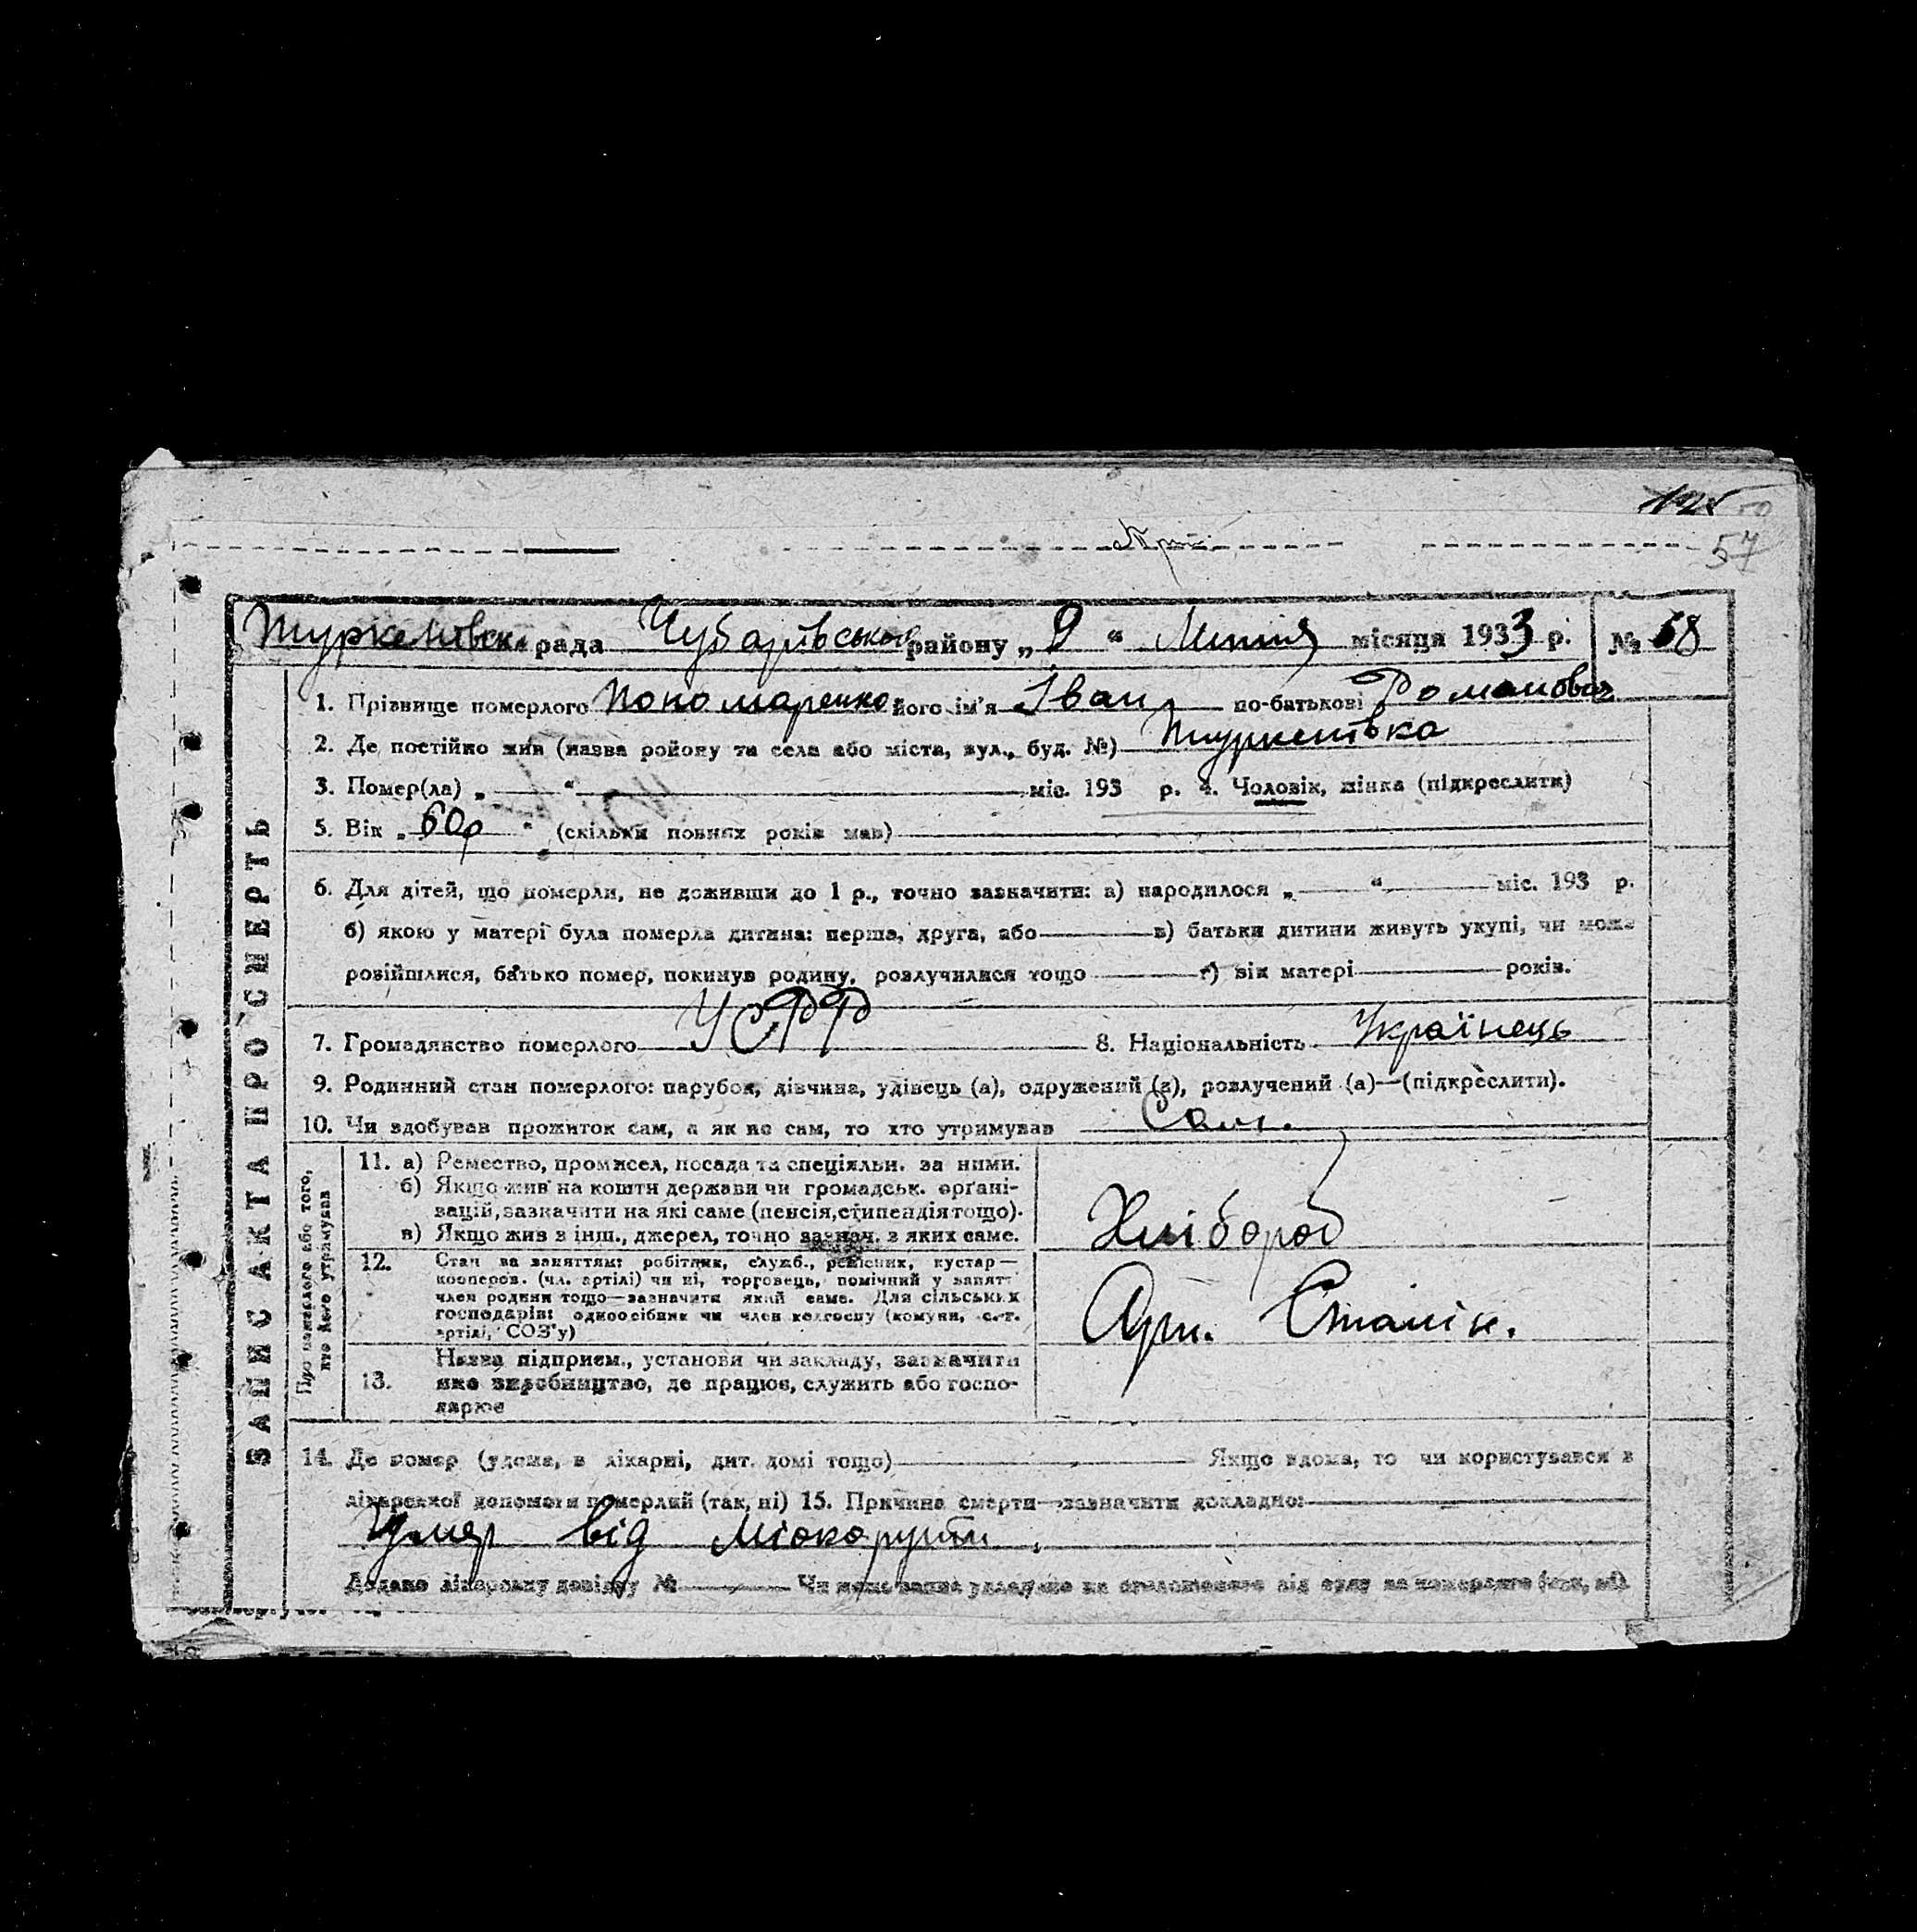 57
Туркенівск. рада Чубарівського району „9“ Липня місяця 1933 р. № 68
1. Прізвище померлого Пономаренко його ім'я Іван по-батькові Романович
2. Де постійно жив (назва району та села або міста, вул., буд. №) Туркенівка
3. Помер(ла) „ “ міс. 193 р. 4. Чоловік, жінка (підкреслити)
5. Вік „60р“ (скільки повних років мав)
6. Для дітей, що померли, не доживши до 1 р., точно зазначити: а) народилося „ “ міс. 193 р.
б) якою у матері була померла дитина: перша, друга, або в) батьки дитини живуть укупі, чи може
розійшлися, батько помер, покинув родину, розлучилися тощо г) вік матері років.
7. Громадянство померлого УСРР 8. Національність Українець
9. Родинний стан померлого: парубок, дівчина, удівець (а), одружений (а), розлучений (а)—(підкреслити).
10. Чи здобував прожиток сам, а як не сам, то хто утримував Сам.
ЗАПИС АКТА ПРО СМЕРТЬ
Про померлого або того,
хто його утримував
11. а) Ремество, промисел, посада та спеціяльн. за ними.
б) Якщо жив на кошти держави чи громадськ. органі-
зацій, зазначити на які саме (пенсія, стипендія тощо).
в) Якщо жив з інш., джерел, точно зазнач. з яких саме.
Хлібороб
12. Стан за заняттям: робітник, служб., ремісник, кустар—
кооперов. (чл. артілі) чи ні, торговець, помічний у занятт
член родини тощо—зазначити який саме. Для сільських
господарів: одноосібник чи член колгоспу (комуни, с.-г.
артілі, СОЗ'у)
Арт. Сталін.
13. Назва підприєм., установи чи закладу, зазначити
яке виробництво, де працює, служить або госпо-
дарює
14. Де помер (удома, в лікарні, дит. домі тощо) Якщо вдома, то чи користувався з
лікарської допомоги померлий (так, ні) 15. Причина смерти—зазначити докладно:
Умер від Міокардити
Додано лікарську довідку № Чи